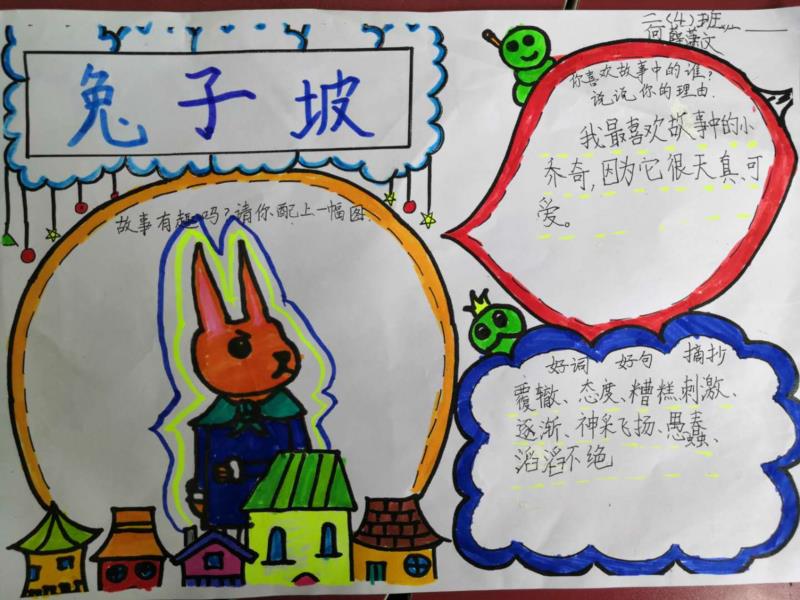 兔子坡
二(4)班
何
文
你喜欢故事中的谁?
说说你的理由.
我最喜欢故事中的小
乔奇,因为它很天真、可
爱。
故事有趣吗?请你配上一幅图.
好词 好句 摘抄
覆辙、态度、糟糕刺激、
逐渐、神采飞扬、愚蠢、
滔滔不绝